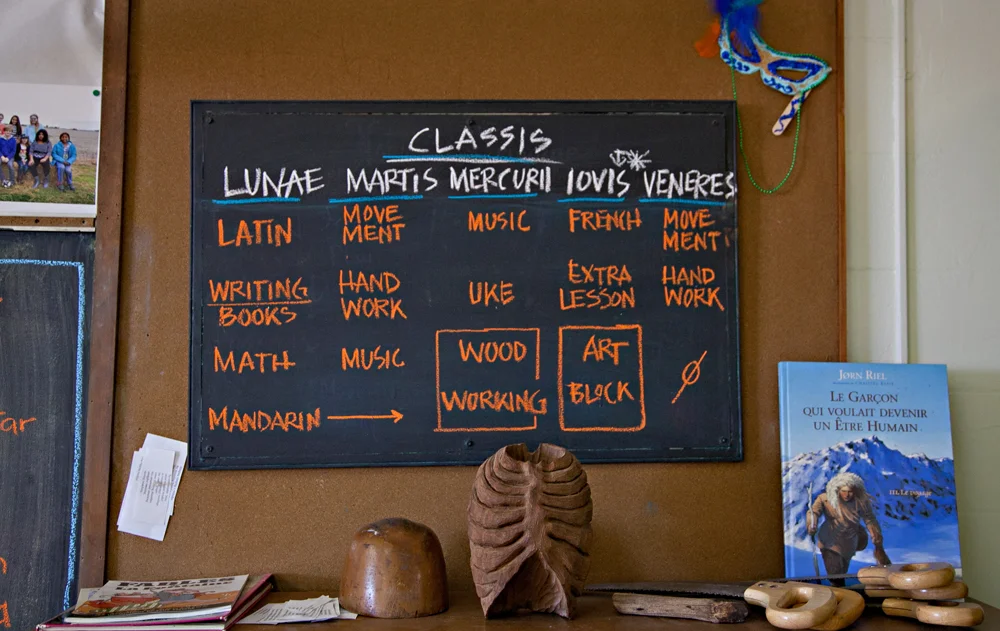 CLASSIS
LUNAE MARTIS MERCURII IOVIS VENERES
LATIN MOVE MENT MUSIC FRENCH MOVE MENT
WRITING BOOKS HAND WORK UKE EXTRA LESSON HAND WORK
MATH MUSIC WOOD WORKING ART BLOCK Ø
MANDARIN →
JØRN RIEL
LE GARÇON
QUI VOULAIT DEVENIR
UN ÊTRE HUMAIN
FABLES